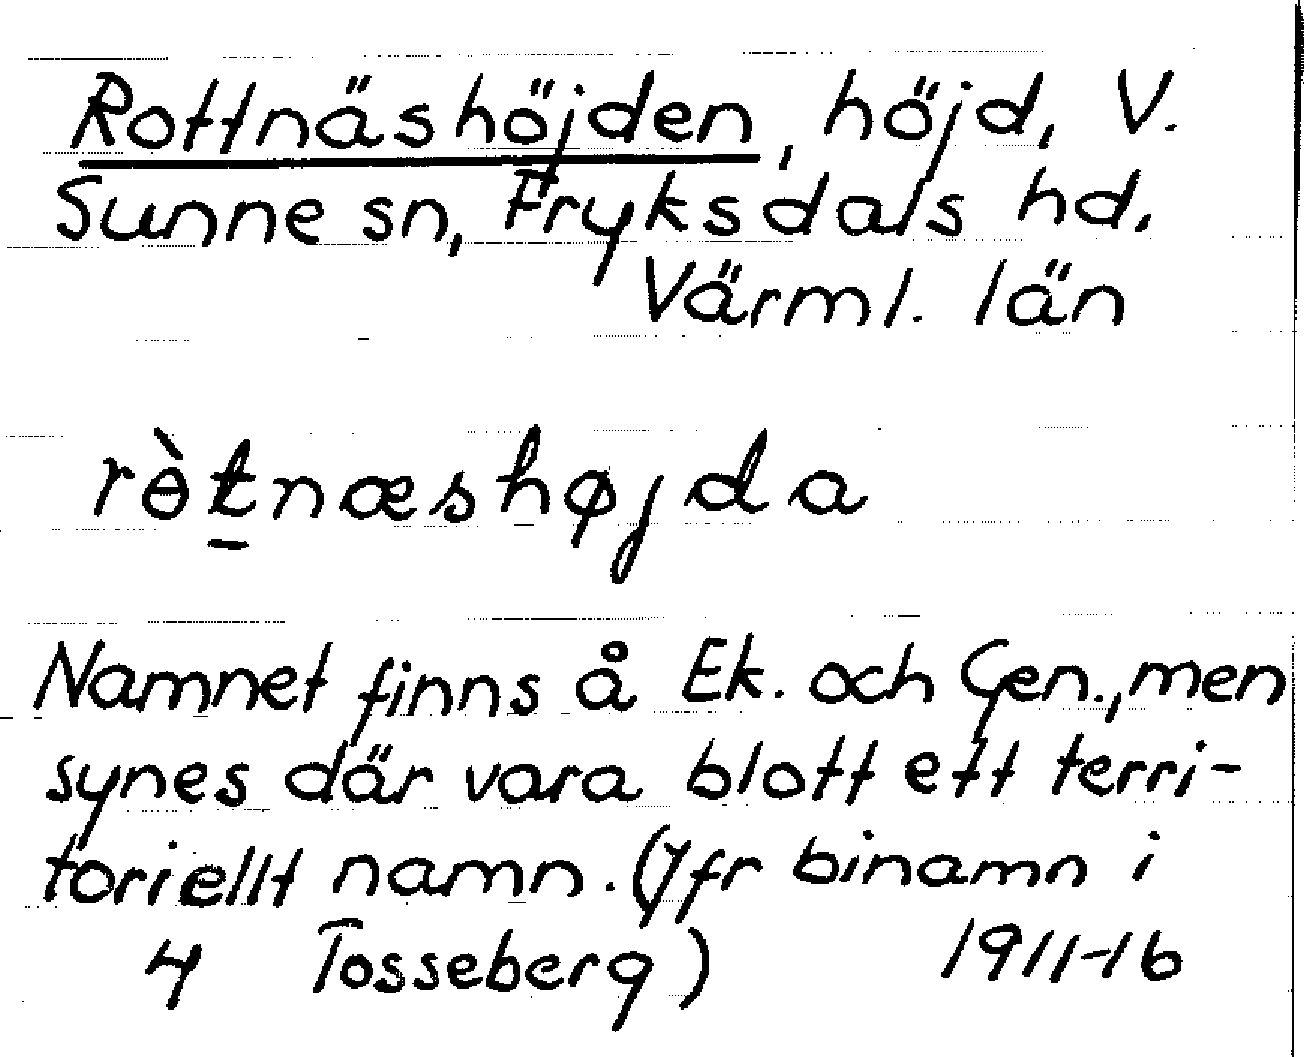 Rottnäshöjden, höjd, V.
Sunne sn, Fryksdals hd,
Värml. län
rɵ̀t̠næshøjda
Namnet finns å Ek. och Gen., men
synes där vara blott ett terri-
toriellt namn. (Jfr binamn i
4 Tosseberg) 1911-16